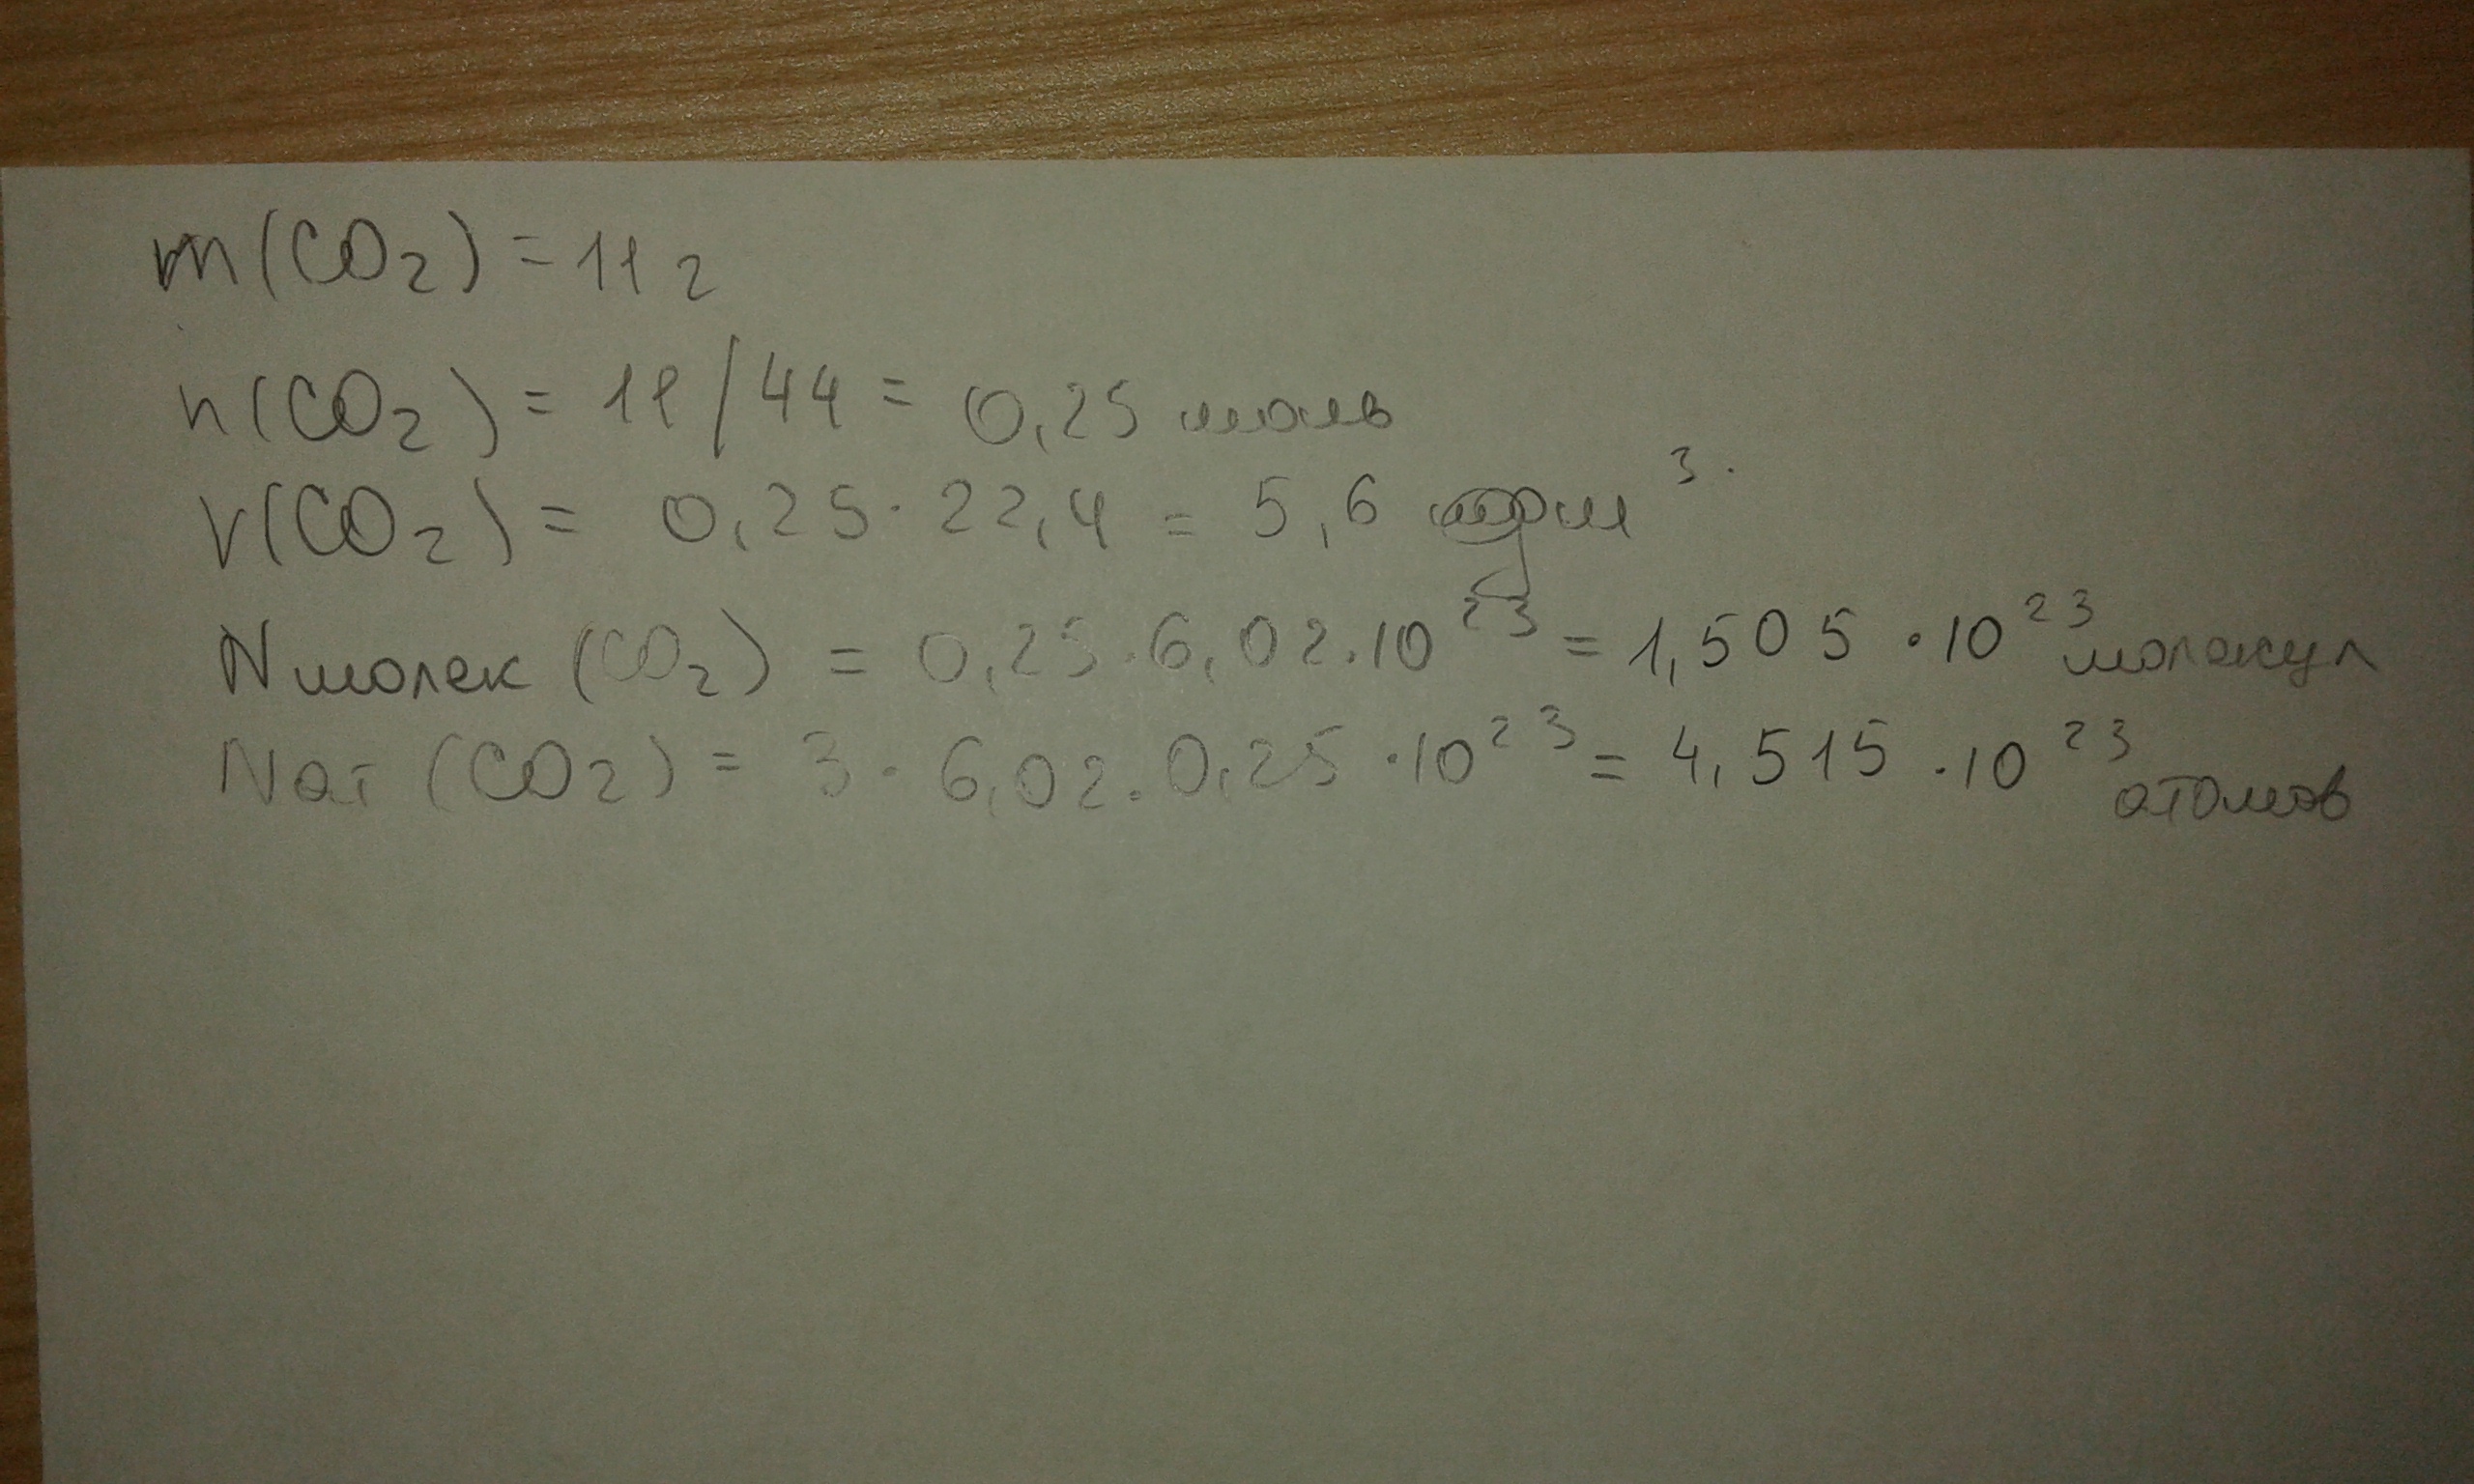 m(CO₂) = 11 г
n(CO₂) = 11/44 = 0,25 моль
V(CO₂) = 0,25 · 22,4 = 5,6 дм³.
Nмолек (CO₂) = 0,25 · 6,02 · 10²³ = 1,505 · 10²³ молекул
Nат (CO₂) = 3 · 6,02 · 0,25 · 10²³ = 4,515 · 10²³ атомов